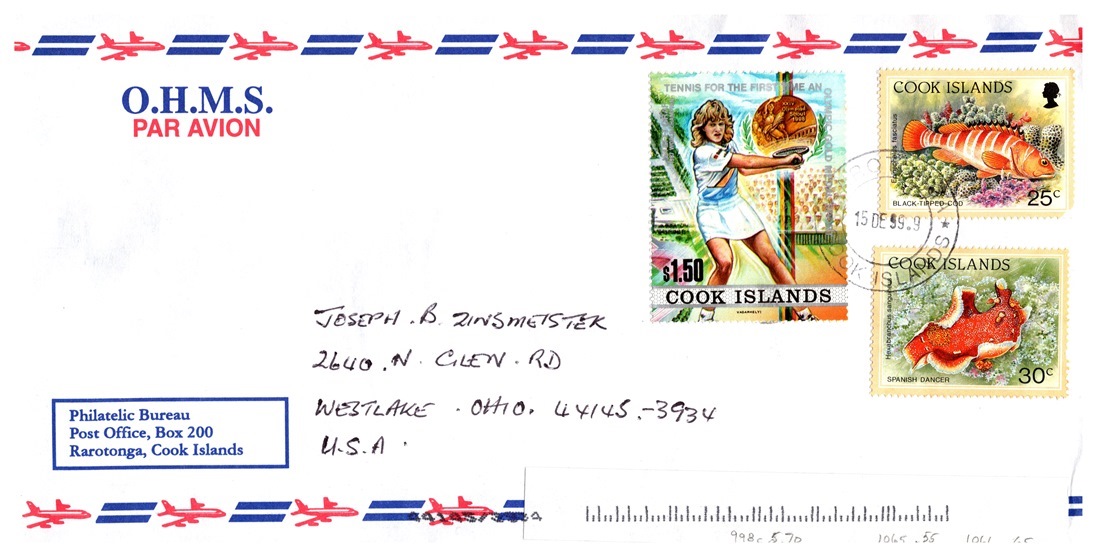 O.H.M.S.
PAR AVION
TENNIS FOR THE FIRST TIME AN
$1.50
COOK ISLANDS
COOK ISLANDS
BLACK-TIPPED-COD
25c
15 DE 99.9
COOK ISLANDS
COOK ISLANDS
SPANISH DANCER
30c
JOSEPH . B. ZINSMEISTER
2640 . N . GLEN . RD
WESTLAKE . OHIO. 44145.-3934
U.S.A .
Philatelic Bureau
Post Office, Box 200
Rarotonga, Cook Islands
998c 5.70 1045 .55 1061 .65